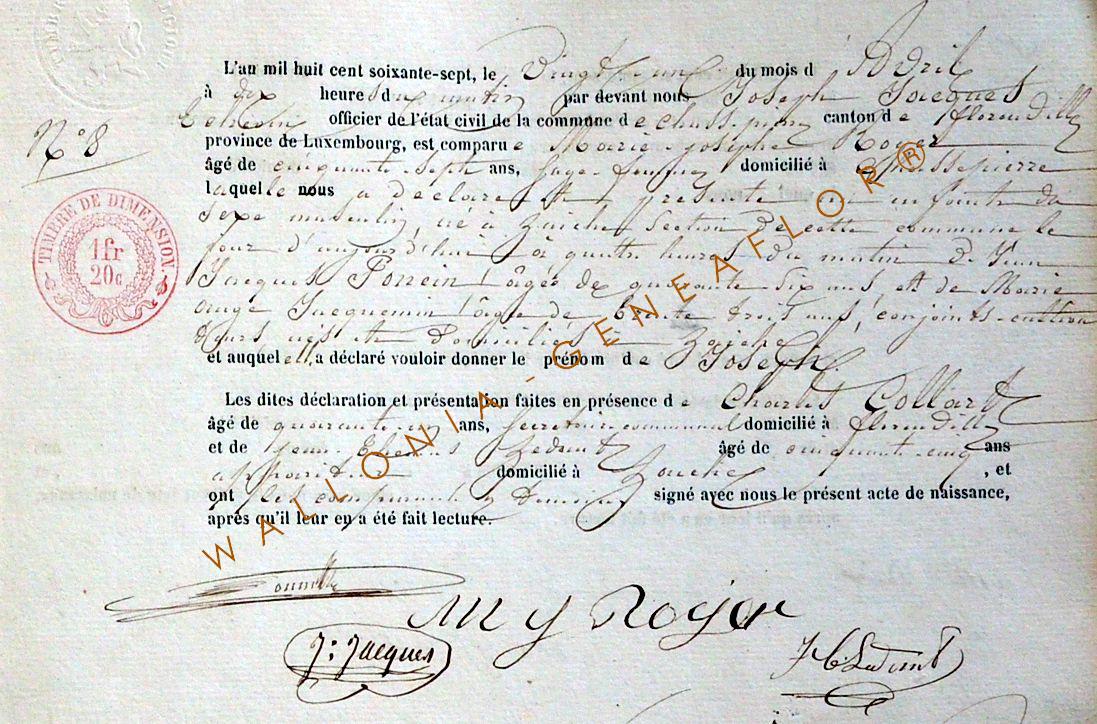 L'an mil huit cent soixante-sept, le Vingt un du mois d'Avril
à dix heures du matin par devant nous Joseph Jacques
officier de l'état civil de la commune de Chassepierre canton de florenville
N° 8
province de Luxembourg, est comparue Marie josephe Roger
âgé de cinquante sept ans, sage-femme domicilié à Chassepierre
laquelle nous a déclaré et présenté un enfant du
sexe masculin, né à section de cette commune le
jour d'aujourd'hui à quatre heures du matin de Jean
Jacques Poncin âgé de quarante six ans et de Marie
ange Jacquemin âgée de trente trois ans, conjoints cultiva
teurs et domiciliés à
et auquel elle a déclaré vouloir donner le prénom de Joseph
TIMBRE DE DIMENSION
1fr
20c
Les dites déclaration et présentation faites en présence de Charles Collard
âgé de quarante ans, Secrétaire communal domicilié à florenville
et de Jean âgé de cinquante cinq ans
appariteur domicilié à , et
ont les comparants signé avec nous le présent acte de naissance,
après qu'il leur en a été fait lecture.
WALLONIA-GENEAFLOR®
M J Roger
J: Jacques